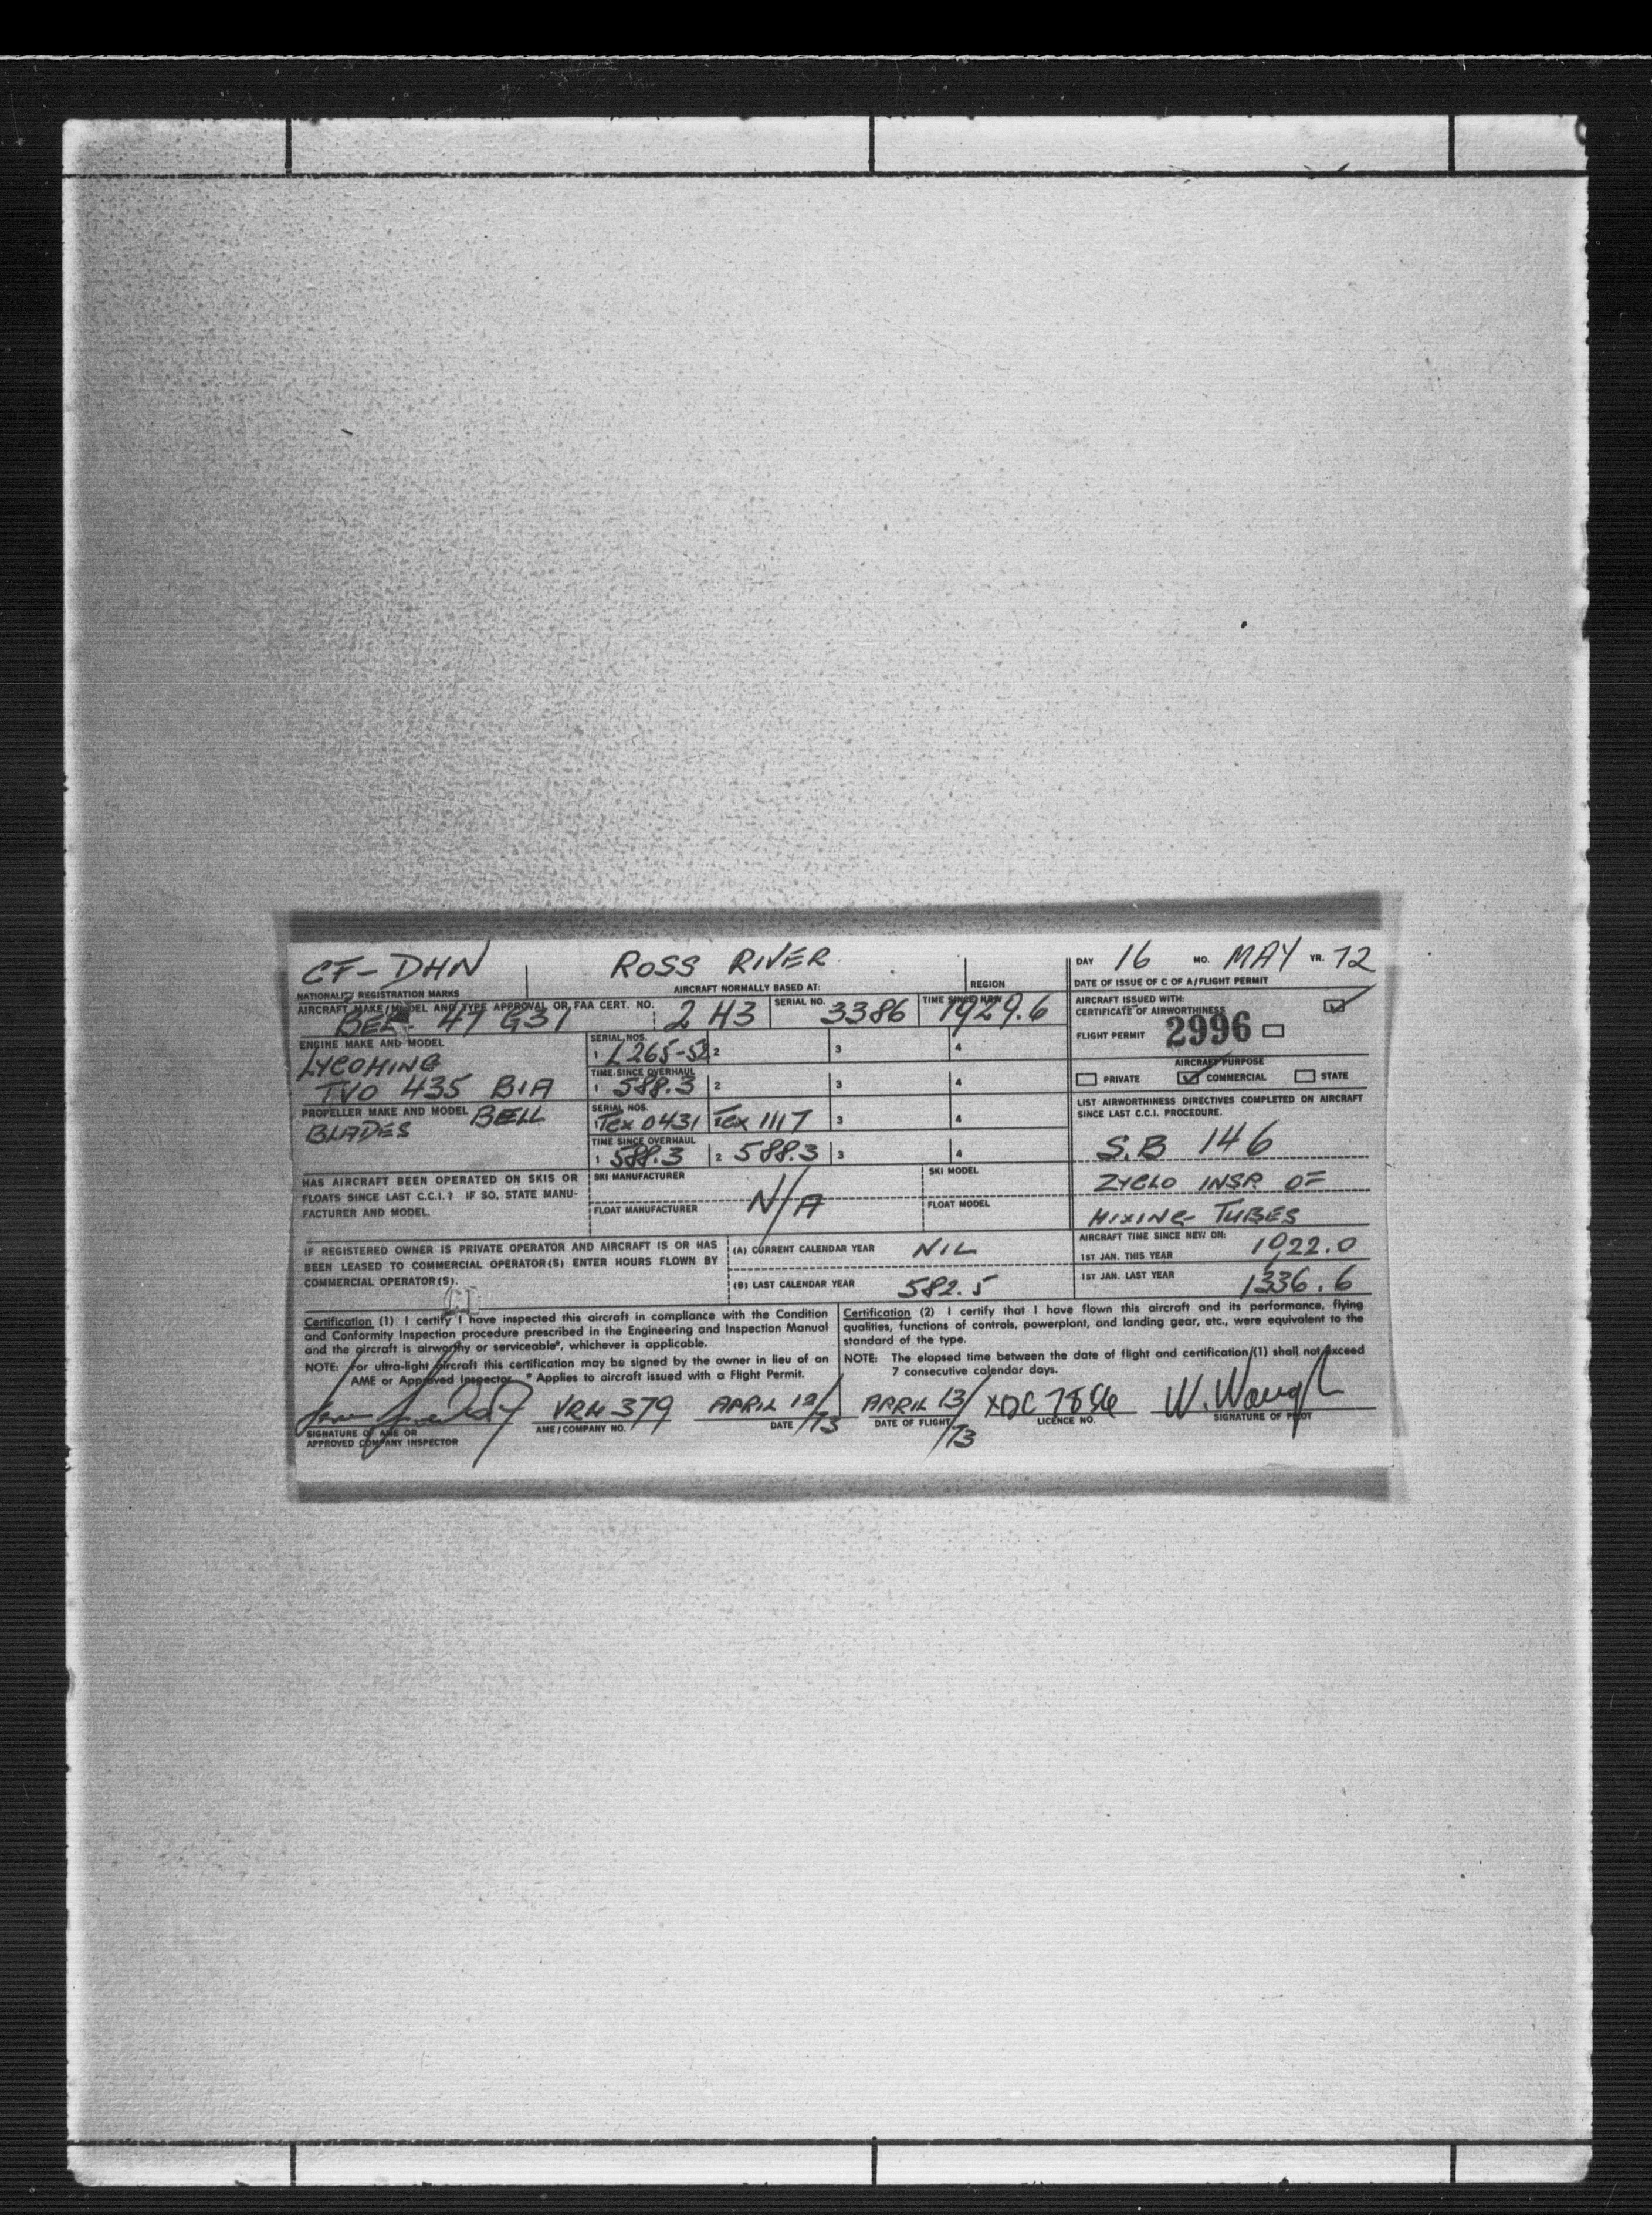 CF-DHN ROSS RIVER DAY 16 MO. MAY YR. 72
NATIONALITY REGISTRATION MARKS AIRCRAFT NORMALLY BASED AT: REGION DATE OF ISSUE OF C OF A/FLIGHT PERMIT
AIRCRAFT MAKE/MODEL AND TYPE APPROVAL OR FAA CERT. NO. SERIAL NO. TIME SINCE NEW
47 G31 2 H3 3386 1929.6
AIRCRAFT ISSUED WITH:
CERTIFICATE OF AIRWORTHINESS
FLIGHT PERMIT 2996
AIRCRAFT PURPOSE
PRIVATE COMMERCIAL STATE
ENGINE MAKE AND MODEL
LYCOMING
TVO 435 B1A
SERIAL NOS.
1 L265-52 2 3 4
TIME SINCE OVERHAUL
1 588.3 2 3 4
PROPELLER MAKE AND MODEL BELL
BLADES
SERIAL NOS.
Tex 0431 Tex 1117 3 4
TIME SINCE OVERHAUL
1 588.3 2 588.3 3 4
LIST AIRWORTHINESS DIRECTIVES COMPLETED ON AIRCRAFT
SINCE LAST C.C.I. PROCEDURE.
S.B 146
ZYCLO INSP. OF
MIXING TUBES
HAS AIRCRAFT BEEN OPERATED ON SKIS OR
FLOATS SINCE LAST C.C.I.? IF SO, STATE MANU-
FACTURER AND MODEL.
SKI MANUFACTURER SKI MODEL
N/A
FLOAT MANUFACTURER FLOAT MODEL
IF REGISTERED OWNER IS PRIVATE OPERATOR AND AIRCRAFT IS OR HAS
BEEN LEASED TO COMMERCIAL OPERATOR(S) ENTER HOURS FLOWN BY
COMMERCIAL OPERATOR(S).
(A) CURRENT CALENDAR YEAR NIL
(B) LAST CALENDAR YEAR 582.5
AIRCRAFT TIME SINCE NEW ON:
1ST JAN. THIS YEAR 1922.0
1ST JAN. LAST YEAR 1336.6
Certification (1) I certify I have inspected this aircraft in compliance with the Condition
and Conformity Inspection procedure prescribed in the Engineering and Inspection Manual
and the aircraft is airworthy or serviceable*, whichever is applicable.
NOTE: For ultra-light aircraft this certification may be signed by the owner in lieu of an
AME or Approved Inspector. * Applies to aircraft issued with a Flight Permit.
Certification (2) I certify that I have flown this aircraft and its performance, flying
qualities, functions of controls, powerplant, and landing gear, etc., were equivalent to the
standard of the type.
NOTE: The elapsed time between the date of flight and certification (1) shall not exceed
7 consecutive calendar days.
VRH 379 APRIL 12/73 APRIL 13/73 W. Waugh
SIGNATURE OF AME OR
APPROVED COMPANY INSPECTOR
AME/COMPANY NO. DATE DATE OF FLIGHT LICENCE NO. SIGNATURE OF PILOT